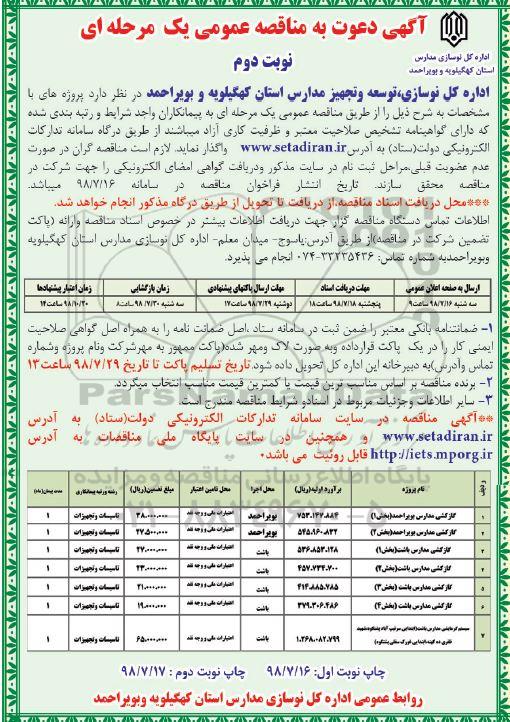 آگهی دعوت به مناقصه عمومی یک مرحله ای
نوبت دوم
اداره کل نوسازی مدارس
استان کهگیلویه و بویراحمد
اداره کل نوسازی،توسعه وتجهیز مدارس استان کهگیلویه و بویراحمد در نظر دارد پروژه های با
مشخصات به شرح ذیل را از طریق مناقصه عمومی یک مرحله ای به پیمانکاران واجد شرایط و رتبه بندی شده
که دارای گواهینامه تشخیص صلاحیت معتبر و ظرفیت کاری آزاد میباشند از طریق درگاه سامانه تدارکات
الکترونیکی دولت(ستاد) به آدرس www.setadiran.ir واگذار نماید. لازم است مناقصه گران در صورت
عدم عضویت قبلی،مراحل ثبت نام در سایت مذکور ودریافت گواهی امضای الکترونیکی را جهت شرکت در
مناقصه محقق سازند. تاریخ انتشار فراخوان مناقصه در سامانه ۹۸/۷/۱۶ میباشد.
***محل دریافت اسناد مناقصه،از دریافت تا تحویل از طریق درگاه مذکور انجام خواهد شد.
اطلاعات تماس دستگاه مناقصه گزار جهت دریافت اطلاعات بیشتر در خصوص اسناد مناقصه وارائه (پاکت
تضمین شرکت در مناقصه)از طریق آدرس:یاسوج- میدان معلم- اداره کل نوسازی مدارس استان کهگیلویه
وبویراحمدبه شماره تماس: ۳۳۲۳۵۴۳۶-۰۷۴ انجام می پذیرد.
ارسال به صفحه اعلان عمومی مهلت دریافت اسناد مهلت ارسال پاکتهای پیشنهادی زمان بازگشایی زمان اعتبار پیشنهادها
سه شنبه ۹۸/۷/۱۶ ساعت۹ پنجشنبه ۹۸/۷/۱۸ ساعت۱۸ دوشنبه ۹۸/۷/۲۹ ساعت۱۷ سه شنبه ۹۸/۷/۳۰ ساعت۸ ۹۸/۱۰/۲۰ ساعت۱۴
۱- ضمانتنامه بانکی معتبر را ضمن ثبت در سامانه ستاد ،اصل ضمانت نامه را به همراه اصل گواهی صلاحیت
ایمنی کار را در یک پاکت قرارداده وبه صورت لاک ومهر شده(پاکت ممهور به مهرشرکت ونام پروژه وشماره
تماس وآدرس)به دبیرخانه این اداره کل تحویل داده شود.تاریخ تسلیم پاکت تا تاریخ ۹۸/۷/۲۹ ساعت۱۳
۲- برنده مناقصه بر اساس مناسب ترین قیمت یا کمترین قیمت مناسب انتخاب میگردد.
۳- سایر اطلاعات وجزئیات مربوط در اسنادو شرایط مناقصه مندرج است.
**آگهی مناقصه در سایت سامانه تدارکات الکترونیکی دولت(ستاد) به آدرس
www.setadiran.ir و همچنین در سایت پایگاه ملی مناقصات به آدرس
http://iets.mporg.ir قابل روئیت می باشد*
ردیف نام پروژه برآورد اولیه(ریال) محل اجرا محل تامین اعتبار مبلغ تضمین(ریال) رشته ورتبه پیمانکاری مدت پیمان(ماه)
۱ گازکشی مدارس بویراحمد(بخش۱) ۷۵۳.۱۴۷.۸۸۴ بویراحمد اعتبارات ملی و وجه نقد ۳۸.۰۰۰.۰۰۰ تاسیسات وتجهیزات ۱
۲ گازکشی مدارس بویراحمد(بخش۲) ۵۴۵.۹۶۰.۸۳۲ بویراحمد اعتبارات ملی و وجه نقد ۲۷.۵۰۰.۰۰۰ تاسیسات وتجهیزات ۱
۳ گازکشی مدارس باشت(بخش۱) ۵۳۶.۸۵۳.۱۲۸ باشت اعتبارات ملی و وجه نقد ۲۷.۰۰۰.۰۰۰ تاسیسات وتجهیزات ۱
۴ گازکشی مدارس باشت(بخش۲) ۴۵۷.۷۳۴.۷۰۰ باشت اعتبارات ملی و وجه نقد ۲۳.۰۰۰.۰۰۰ تاسیسات وتجهیزات ۱
۵ گازکشی مدارس باشت (بخش۳) ۴۱۴.۸۸۵.۷۸۵ باشت اعتبارات ملی و وجه نقد ۲۱.۰۰۰.۰۰۰ تاسیسات وتجهیزات ۱
۶ گازکشی مدارس باشت (بخش۴) ۳۷۹.۳۰۶.۴۸۶ باشت اعتبارات ملی و وجه نقد ۱۹.۰۰۰.۰۰۰ تاسیسات وتجهیزات ۱
۷ سیستم گرمایشی مدارس باشت ۱.۲۶۸.۰۸۲.۷۹۹ باشت اعتبارات ملی و وجه نقد ۶۵.۰۰۰.۰۰۰ تاسیسات وتجهیزات ۱
چاپ نوبت اول: ۹۸/۷/۱۶ چاپ نوبت دوم : ۹۸/۷/۱۷
روابط عمومی اداره کل نوسازی مدارس استان کهگیلویه وبویراحمد